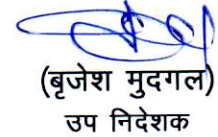 (बृजेश मुदगल)
उप निदेशक